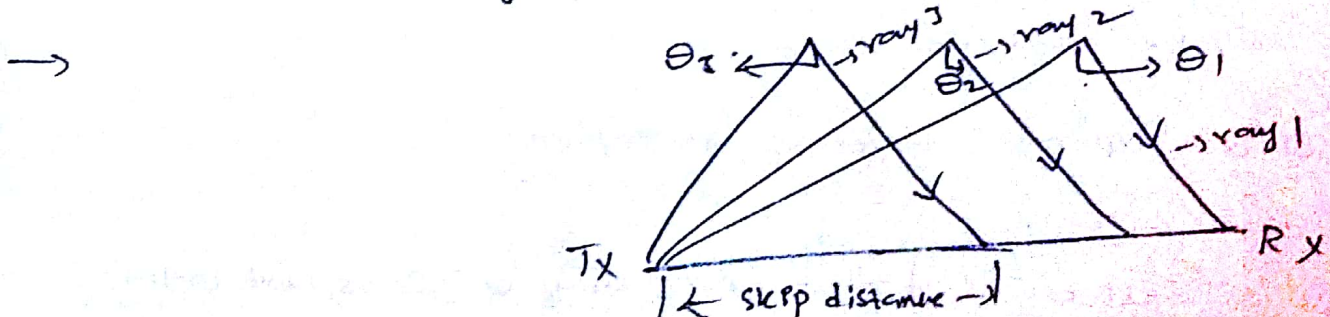 →
θ3 ← → ray 3
→ ray 2
θ2
→ θ1
→ ray 1
Tx
Rx
← skip distance →